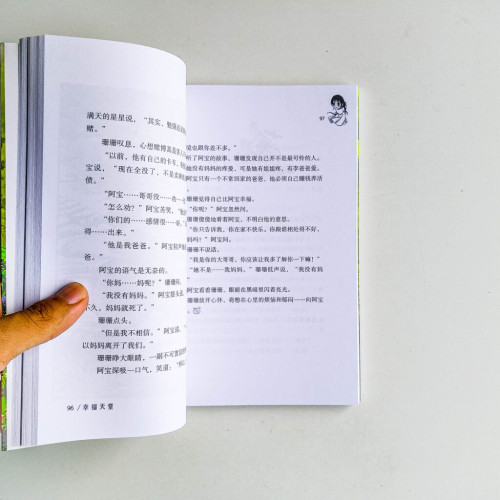 满天的星星说，“其实，
赌。”
珊珊叹息，心想赌博真
“以前，他有自己的卡车，
宝说，“现在全没了，不是卖
债。”
“阿宝……哥哥没……
“怎么劝？”阿宝苦笑，
“你们的……感情很……
得……出来。”
“他是我爸爸。”阿宝
爸。”
阿宝的语气是无奈的。
“你妈……妈呢？”珊珊
“我没有妈妈。”阿宝摇头
不久，妈妈就死了。”
珊珊点头。
“但是我不相信。”阿宝说，
以妈妈离开了我们。”
珊珊睁大眼睛，一副不可置信
阿宝深吸一口气，笑道：
96 / 幸福天堂
97
说也跟你差不多。”
听了阿宝的故事，珊珊发现自己并不是最可怜的人。
没有妈妈的疼爱，可是她有姐姐疼，有爸爸爱。
阿宝只有一个不常回家的爸爸，他必须自己赚钱养活
珊觉得自己比阿宝幸福。
“你呢？”阿宝忽然问。
珊珊傻傻地看着阿宝，不明白他的意思。
“你只告诉我，你在家不快乐。你跟谁相处得不好，
妈吗？”阿宝问。
珊珊不说话。
“我是你的大哥哥，你应该让我多了解你一下嘛！”
“她不是……我妈妈。”珊珊低声说，“我没有妈
阿宝看着珊珊，眼睛在黑暗里闪着亮光。
珊珊放开心怀，将憋在心里的烦恼和郁闷——向阿宝